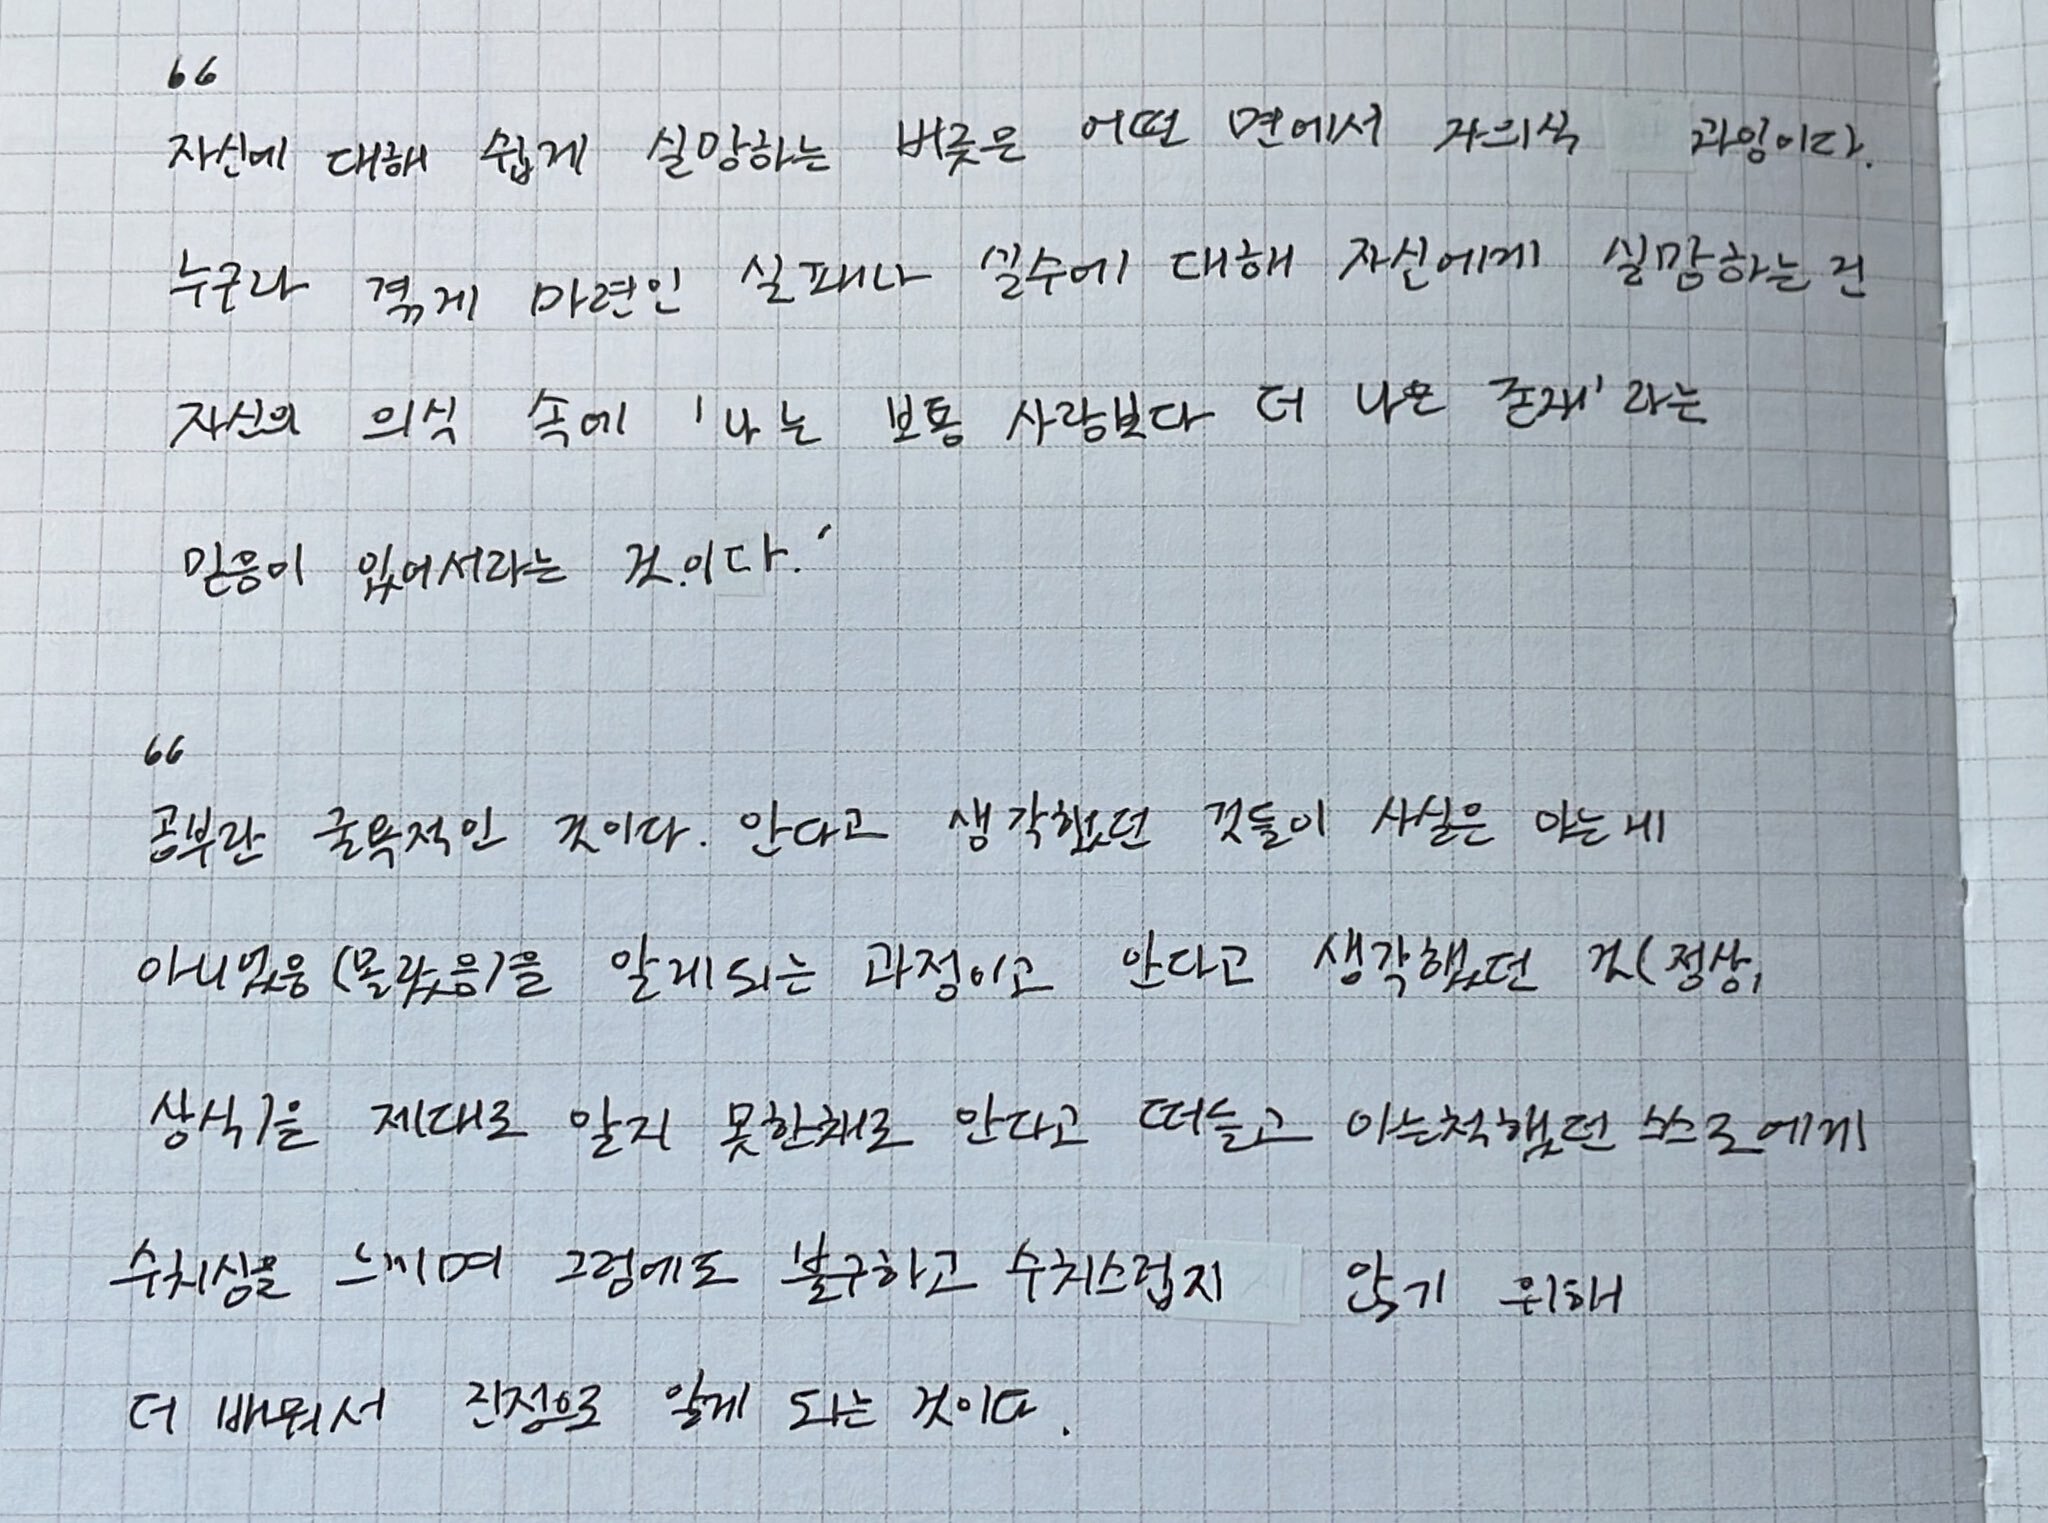 “
자신에 대해 쉽게 실망하는 버릇은 어떤 면에서 자의식 과잉이다.
누구나 겪게 마련인 실패나 실수에 대해 자신에게 실망하는 건
자신의 의식 속에 '나는 보통 사람보다 더 나은 존재'라는
믿음이 있어서라는 것이다.'
“
공부란 굴욕적인 것이다. 안다고 생각했던 것들이 사실은 아는게
아니었음(몰랐음)을 알게되는 과정이고 안다고 생각했던 것(정상,
상식)을 제대로 알지 못한채로 안다고 떠들고 아는척했던 스스로에게
수치심을 느끼며 그럼에도 불구하고 수치스럽지 않기 위해
더 배워서 진정으로 알게 되는 것이다.